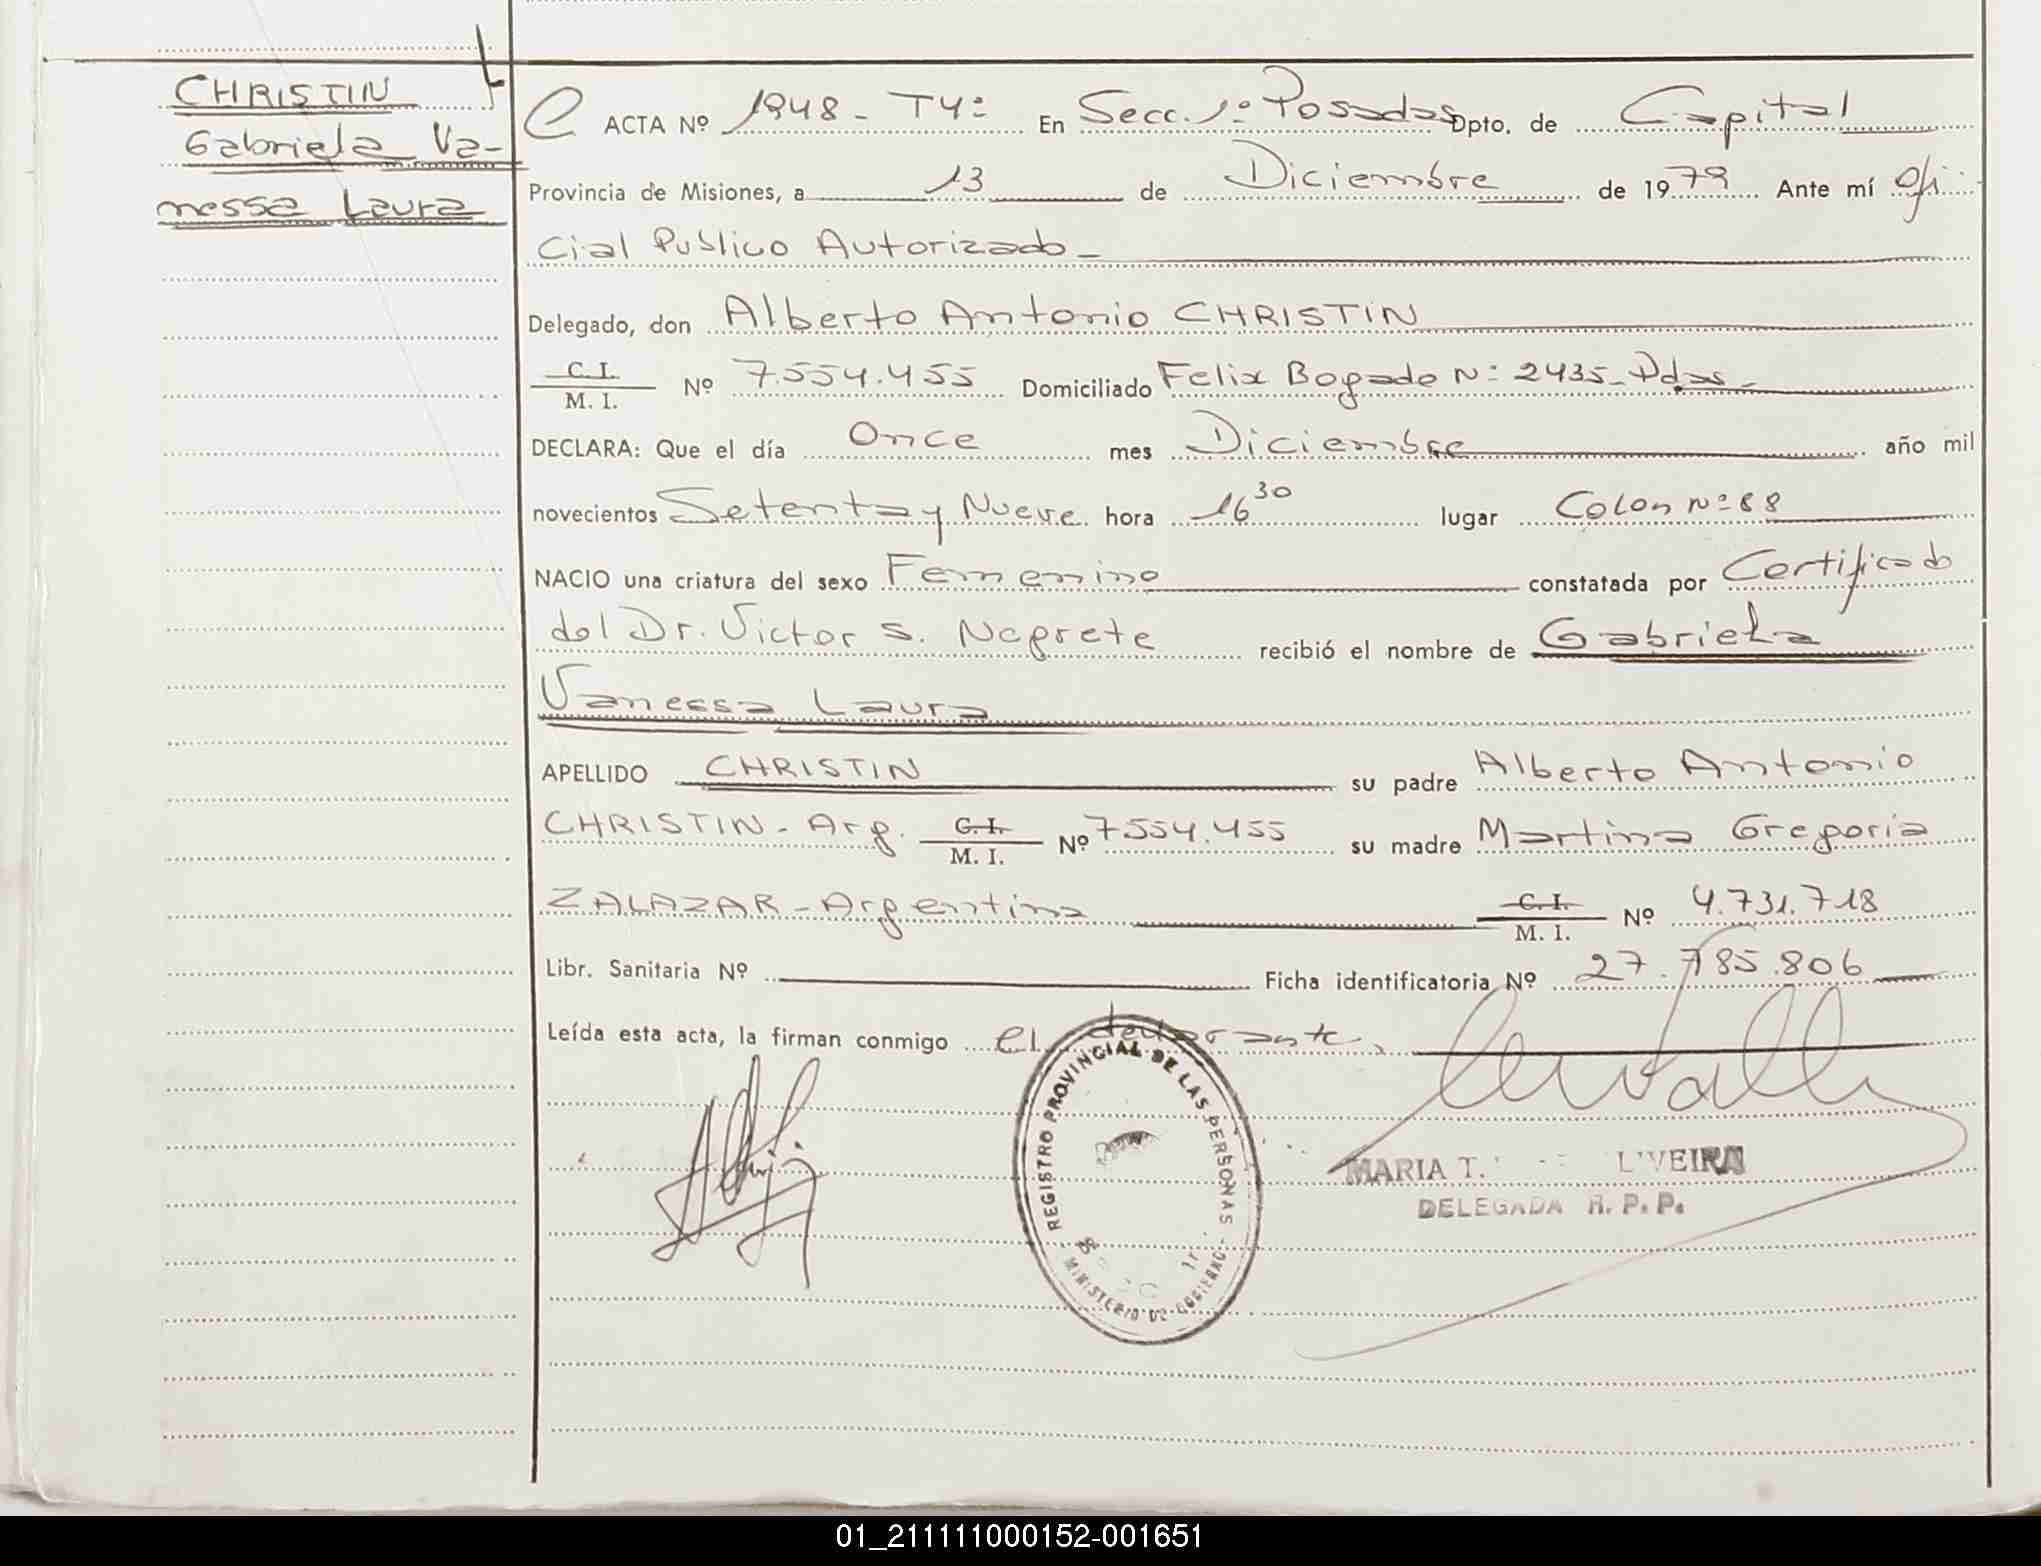 CHRISTIN
Gabriela Va-
nessa Laura
ACTA Nº 1948 - T4º En Secc. 1º Posadas Dpto. de Capital
Provincia de Misiones, a 13 de Diciembre de 1979 Ante mí Ofi
cial Publico Autorizado -
Delegado, don Alberto Antonio CHRISTIN
C. I.
M. I. Nº 7.554.455 Domiciliado Felix Bogado Nº 2435 - Pdas -
DECLARA: Que el día Once mes Diciembre año mil
novecientos Setenta y Nueve hora 16 30 lugar Colon Nº 88
NACIO una criatura del sexo Femenino constatada por Certificado
del Dr. Victor S. Negrete recibió el nombre de Gabriela
Vanessa Laura
APELLIDO CHRISTIN su padre Alberto Antonio
CHRISTIN - Arg. C. I.
M. I. Nº 7554.455 su madre Martina Gregoria
ZALAZAR - Argentina C. I.
M. I. Nº 4.731.718
Libr. Sanitaria Nº Ficha identificatoria Nº 27.785.806
Leída esta acta, la firman conmigo el declarante.
REGISTRO PROVINCIAL DE LAS PERSONAS
MINISTERIO DE GOBIERNO
MARIA T.
DELEGADA R. P. P.
01_211111000152-001651